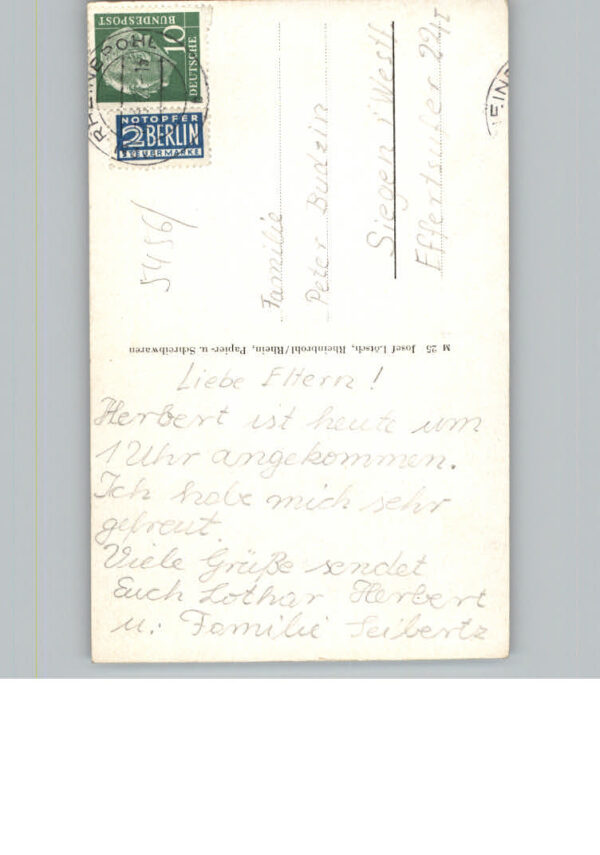 Liebe Eltern!
Herbert ist heute um
1 Uhr angekommen.
Ich habe mich sehr
gefreut.
Viele Grüße sendet
Euch Lothar Herbert
u. Familie Seibertz
M 25 Josef Lötsch, Rheinbrohl/Rhein, Papier- u. Schreibwaren
Familie
Peter Budzin
Siegen i/Westf
Effertsufer
5496/
10
DEUTSCHE
BUNDESPOST
NOTOPFER
2 BERLIN
STEUERMARKE
RHEINBROHL